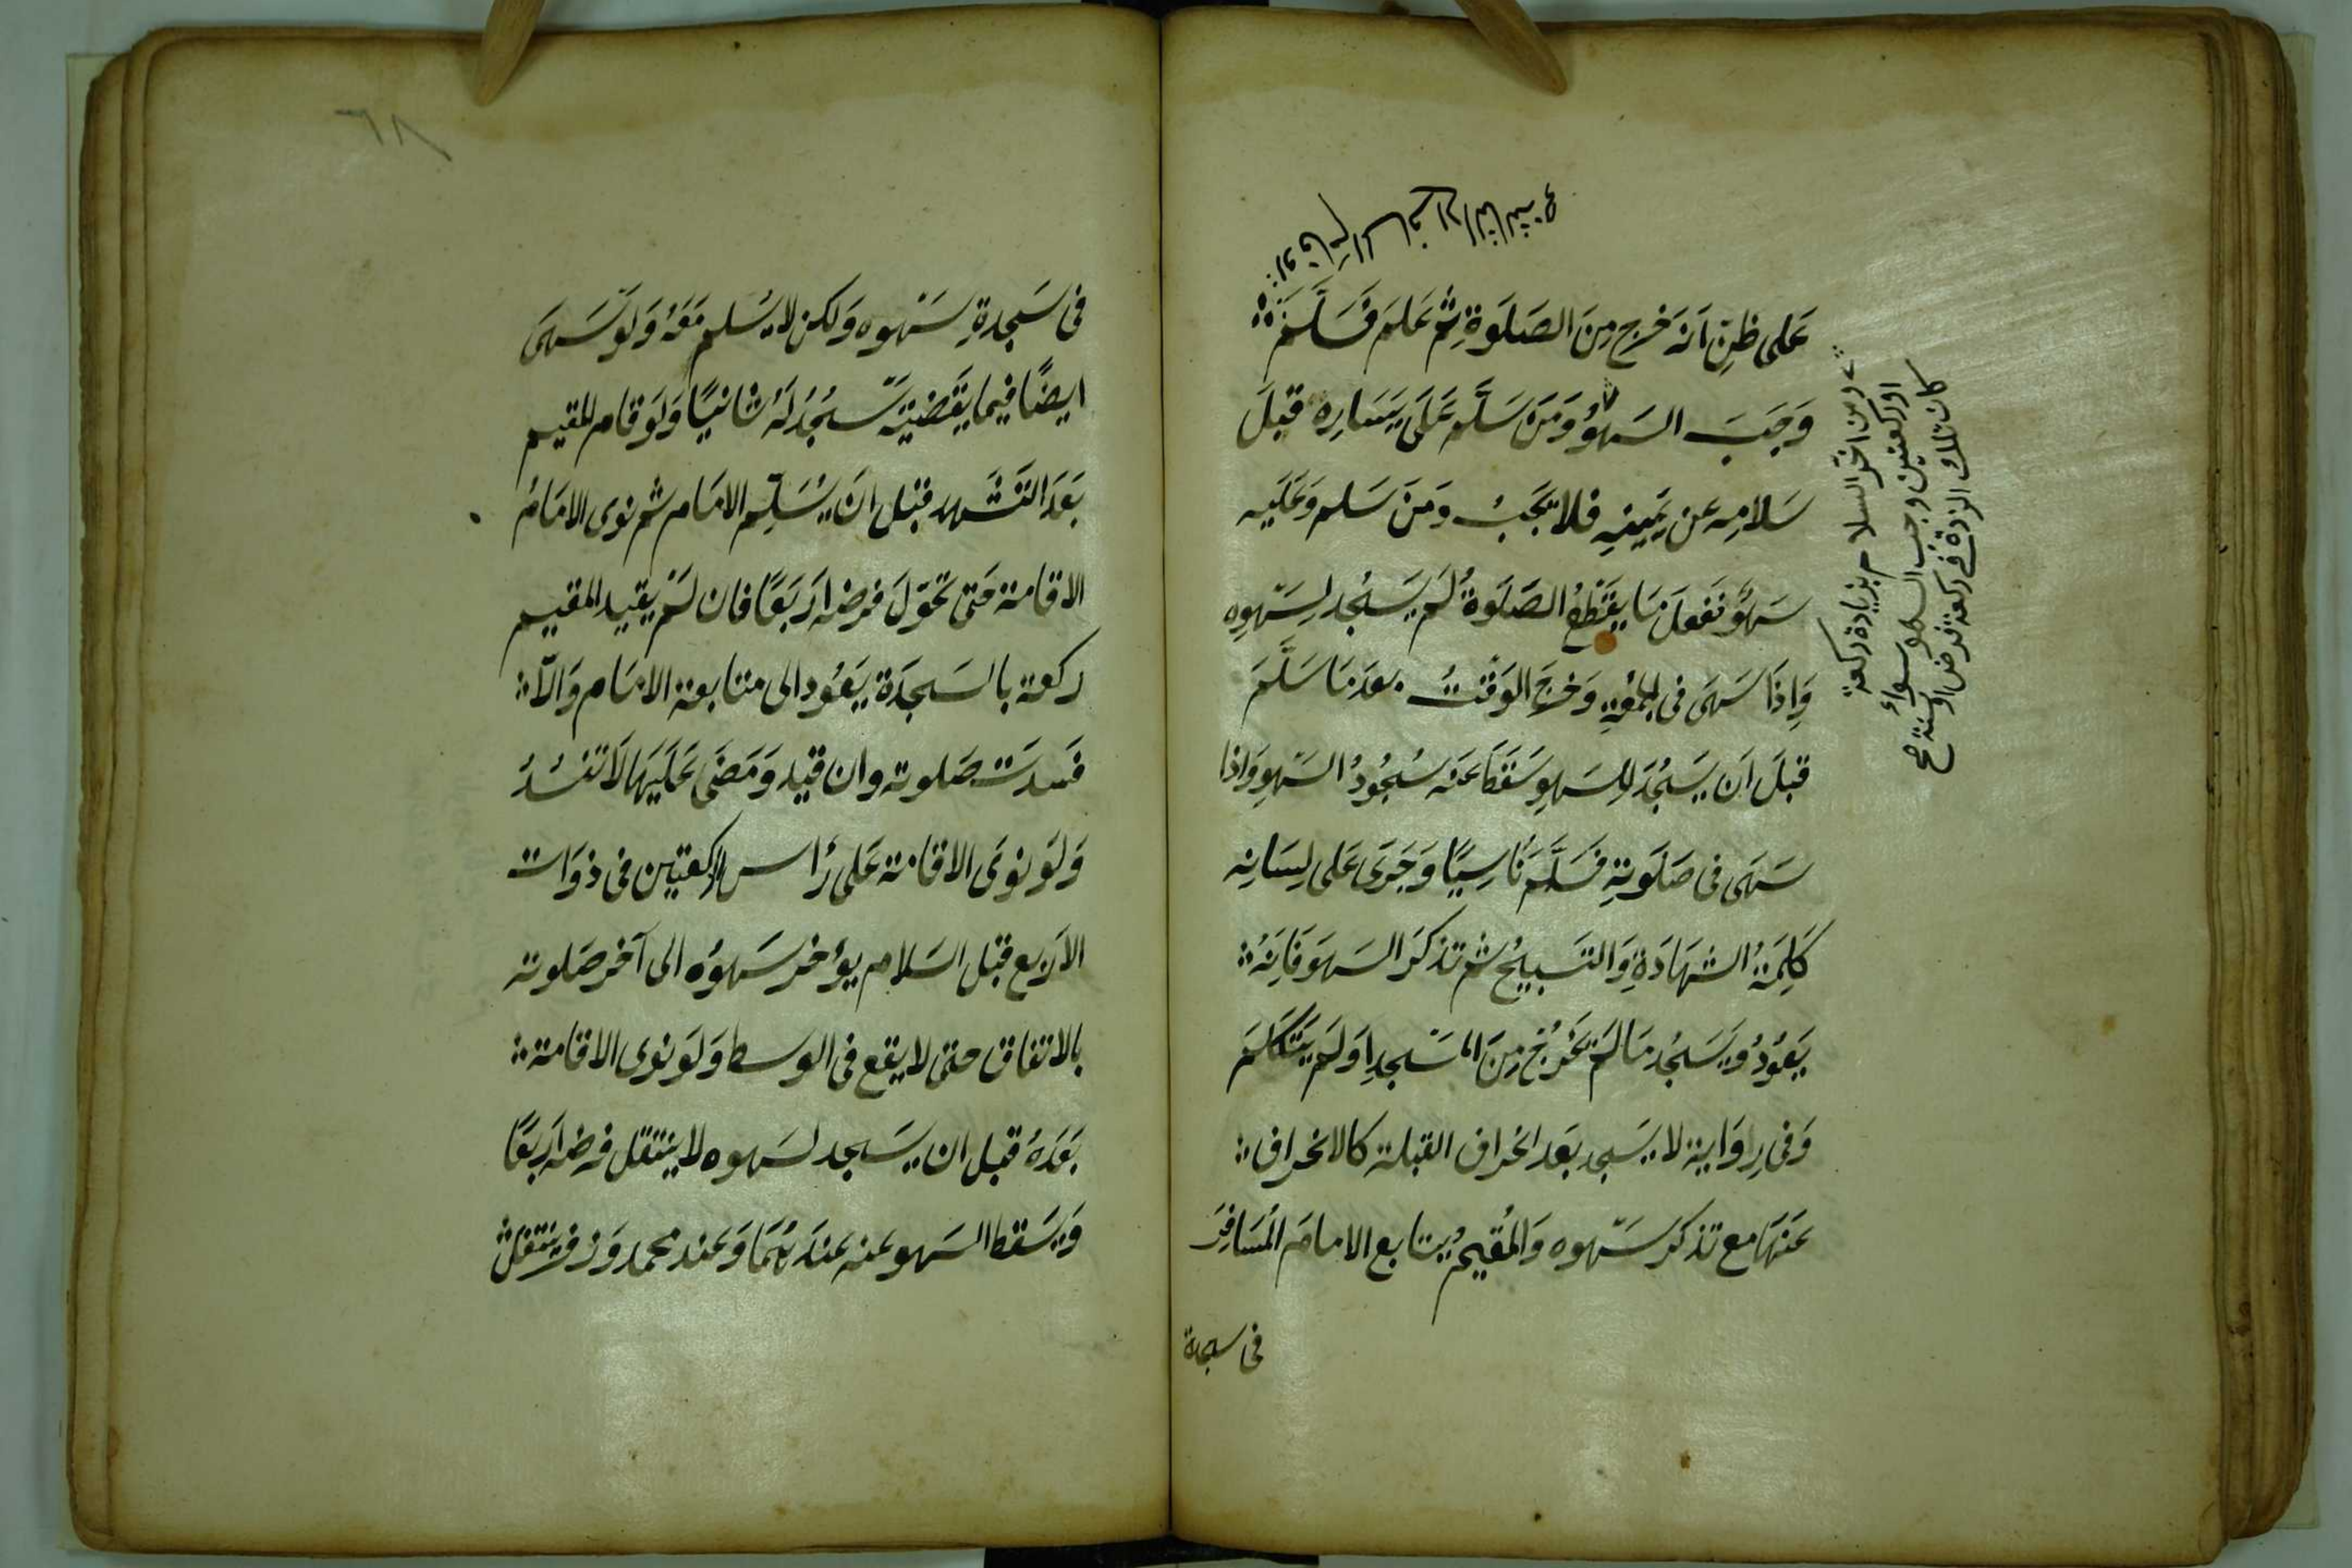 على ظن انه خرج من الصلوة ثم علم فسلم
وجب السهو ومن سلم على يساره قبل
سلامه عن يمينه فلا يجب ومن سلم وعليه
سهو ففعل ما يقطع الصلوة لم يسجد لسهوه
واذا سهى فى الجمعة وخرج الوقت بعد ما سلم
قبل ان يسجد للسهو سقط عنه سجود السهو واذا
سهى فى صلوته فسلم ناسيا وجرى على لسانه
كلمة الشهادة والتسبيح ثم تذكر السهو فانه
يعود ويسجد ما لم يخرج من المسجد او لم يتكلم
وفى رواية لا يسجد بعد انحراف القبلة كالانحراف
عنها مع تذكر سهوه والمقيم يتابع الامام المسافر
فى سجدة
ومن اخر السلام بزيادة ركعة
او ركعتين وجب السهو سواء
كان تلك الزيادة فى ركعة فرض او سنة صح
فى سجدة سهوه ولكن لا يسلم معه ولو سهى
ايضا فيما يقضيه سجد له ثانيا ولو قام المقيم
بعد التشهد قبل ان يسلم الامام ثم نوى الامام
الاقامة حتى تحول فرضه اربعا فان لم يقيد المقيم
ركعة بالسجدة يعود الى متابعة الامام والا
فسدت صلوته وان قيد ومضى عليها لا تفسد
ولو نوى الاقامة على رأس الركعتين فى ذوات
الاربع قبل السلام يؤخر سهوه الى آخر صلوته
بالاتفاق حتى لا يقع فى الوسط ولو نوى الاقامة
بعده قبل ان يسجد لسهوه لا ينتقل فرضه اربعا
ويسقط السهو عنه عندهما وعند محمد وزفر ينتقل